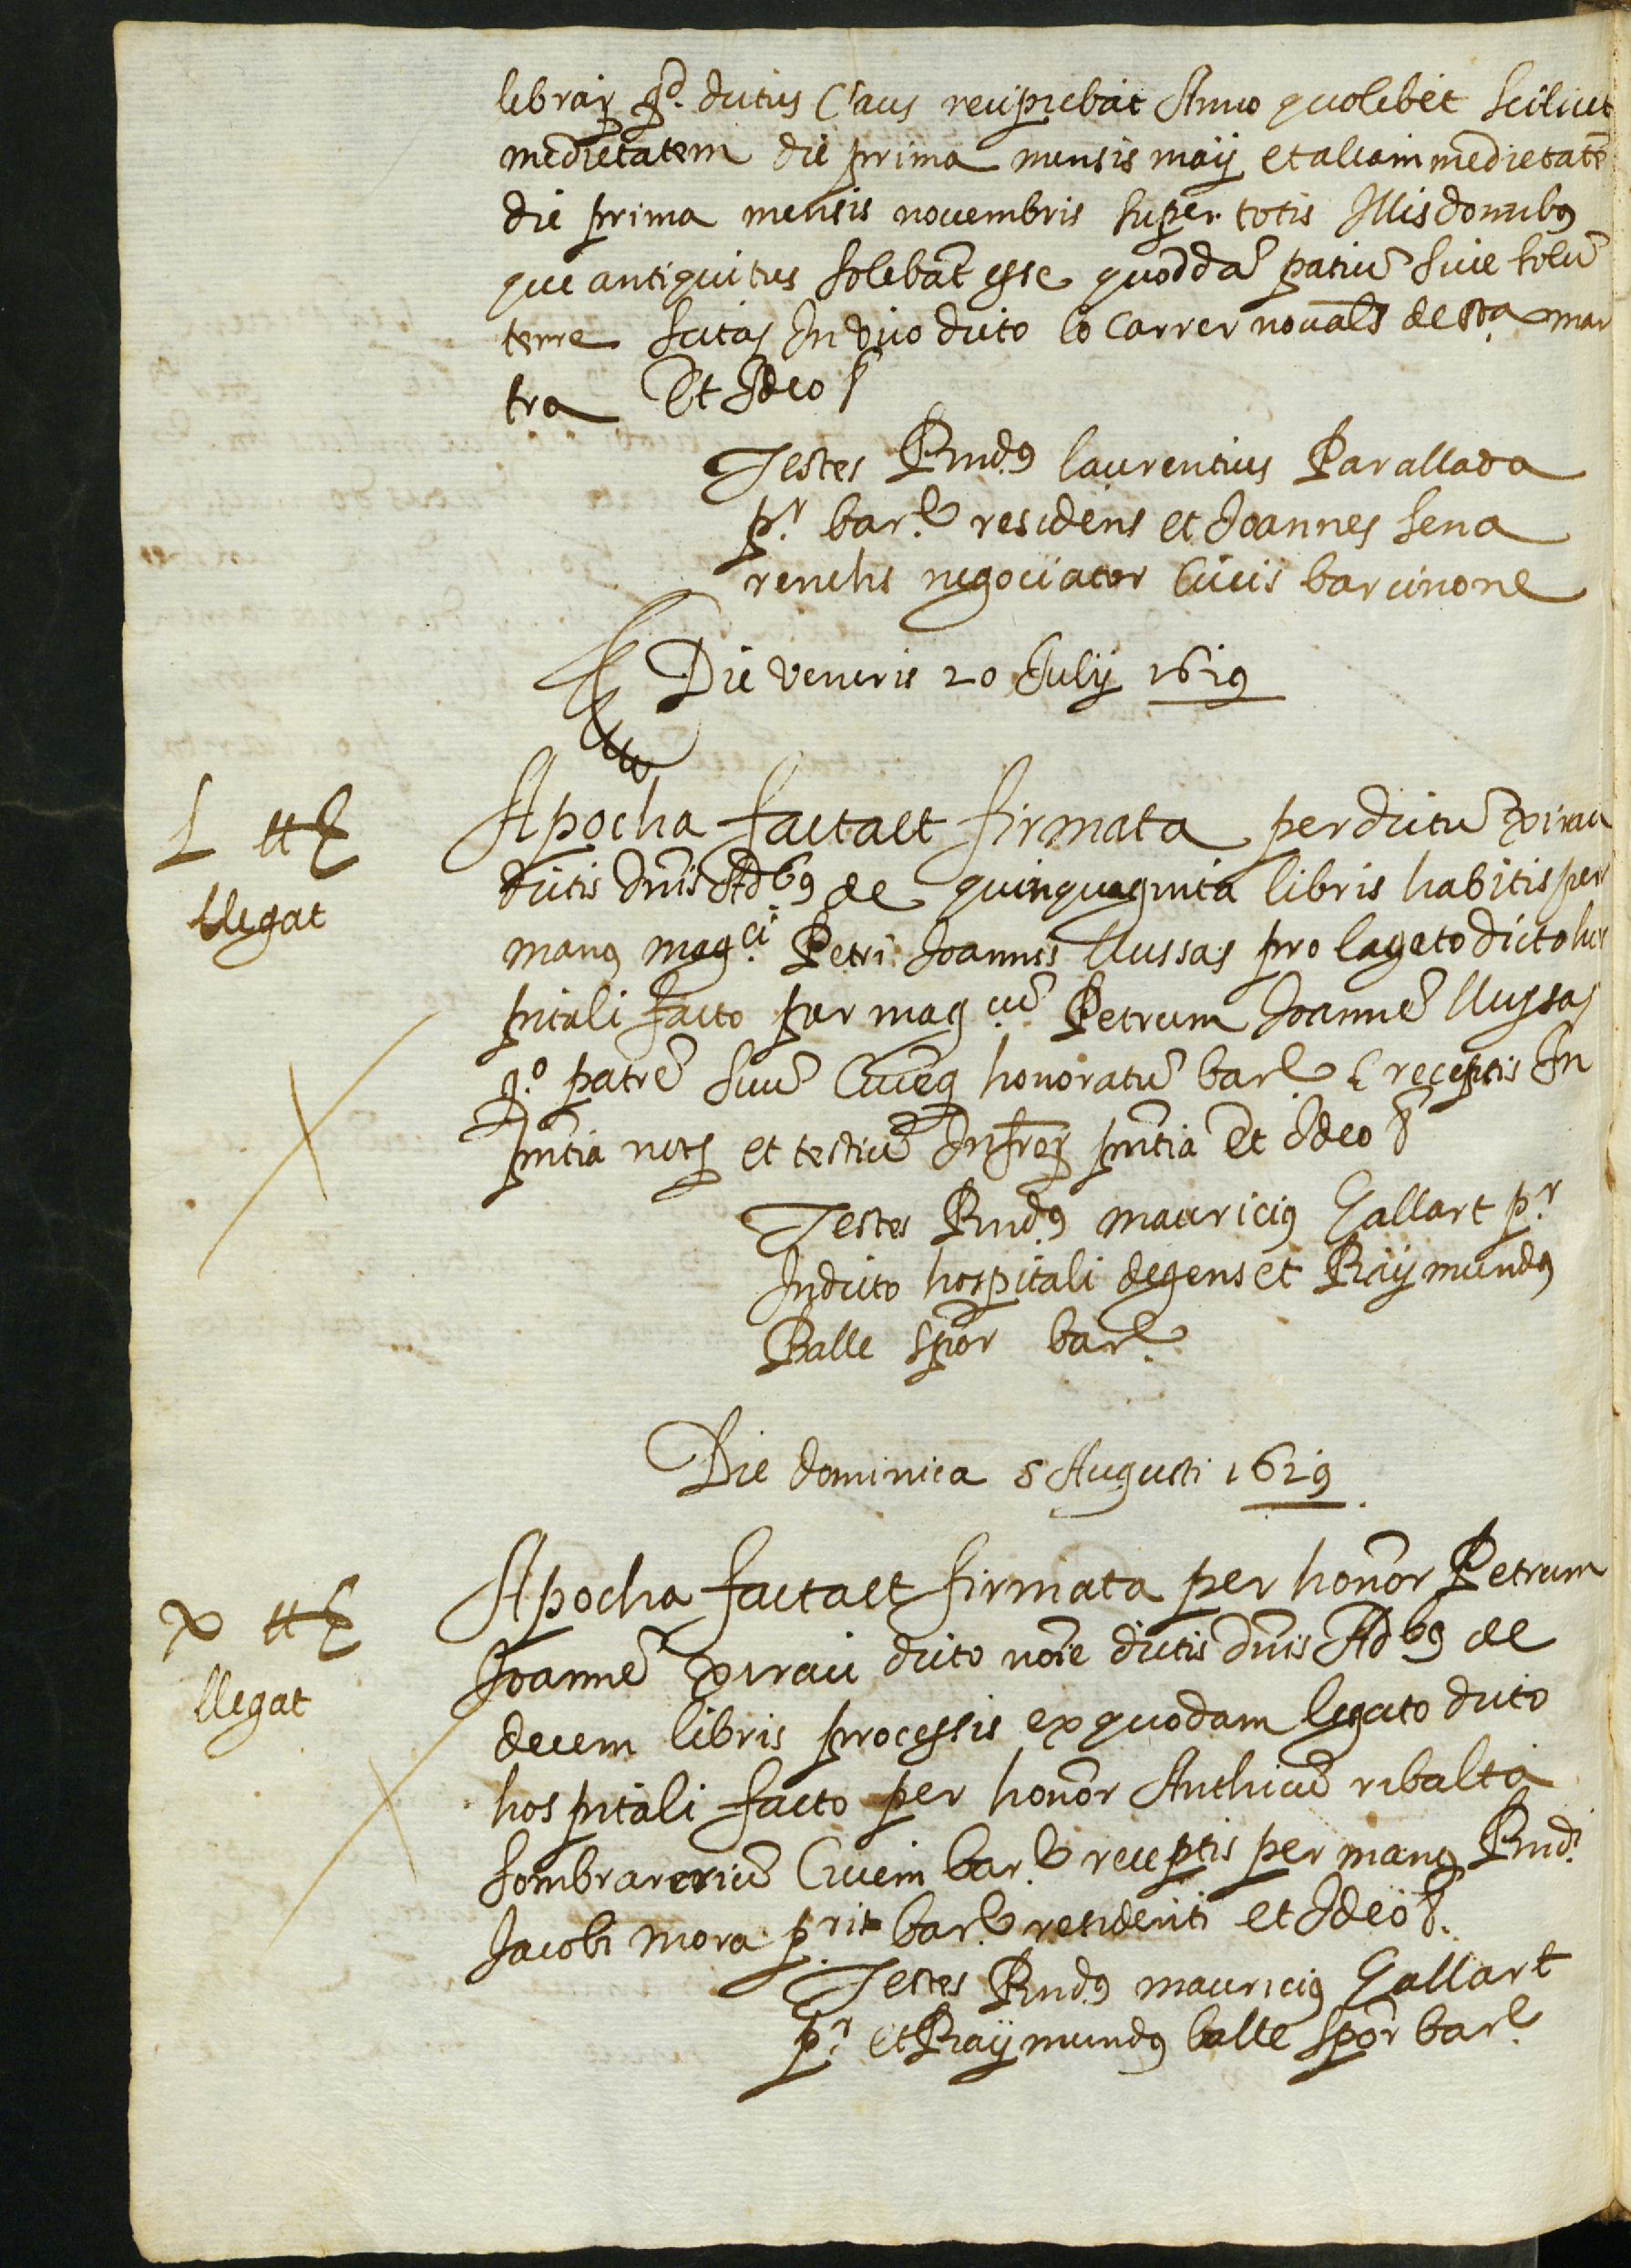 librar͂ qd. dictus Claus recipiebat Anno quolibet scilicet
medietatem die prima mensis maij et aliam medietatẽ
die prima mensis nouembris super totis Illis domibꝰ
que antiquitus solebãt esse quoddã patiũ siue solũ
terre sitas In vico dicto lo carrer nou als de sta mar
tra Et Ideo &
Testes Rndꝰ laurentius Parallada
pr. barẽ residens et Joannes sena
renchs negociator Ciuis barcinone
Die veneris 20 Julij 1629
L ₶
llegat
Apocha facta et firmata per dictũ Xirau
dictis dnis Adbꝰ de quinquaginta libris habitis per
manꝰ mag.ci Petri Joannis llussas pro lagato dicto hos
pitali facto per mag.cũ Petrum Joannẽ llussas
qº patrẽ suũ Ciuẽq honoratũ barẽ receptis In
pñtia notj et testiũ Infror͂ pñtia Et Ideo &
Testes Rndꝰ mauriciꝰ Gallart pr.
In dicto hospitali degens et Raijmundꝰ
Balle spõr bar.
Die dominica 5 Augusti 1629
X ₶
llegat
Apocha facta et firmata per honõr Petrum
Joannẽ Xirau dicto noĩe dictis dnis Adbꝰ de
decem libris processis ex quodam legato dicto
hospitali facto per honõr Anthicũ ribalta
sombrareriũ Ciuem barẽ receptis per manꝰ Rndi
Jacobi mora pris barẽ residenti et Ideo &.
Testes Rndꝰ mauriciꝰ Gallart
pr. et Raijmundꝰ balle spõr bar.